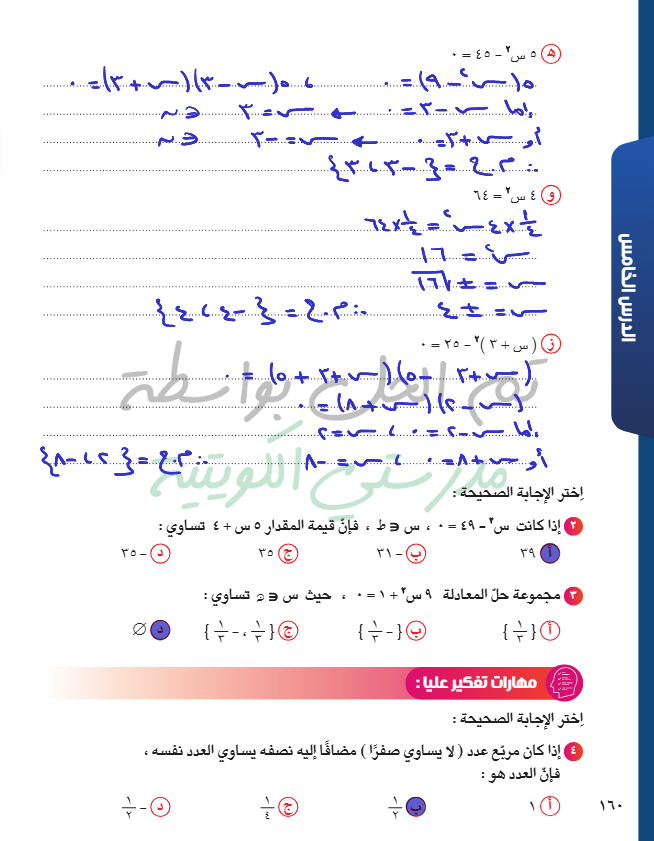 هـ ٥ س² - ٤٥ = ٠
٥(س² - ٩) = ٠ ، ٥(س - ٣)(س + ٣) = ٠
إما س - ٣ = ٠ ← س = ٣ ∈ ن
أو س + ٣ = ٠ ← س = -٣ ∈ ن
∴ م.ح = {-٣ ، ٣}
و ٤ س² = ٦٤
١/٤ × ٤ س² = ١/٤ × ٦٤
س² = ١٦
س = ± √١٦
س = ± ٤ ∴ م.ح = {-٤ ، ٤}
ز (س + ٣)² - ٢٥ = ٠
(س + ٣ - ٥)(س + ٣ + ٥) = ٠
(س - ٢)(س + ٨) = ٠
إما س - ٢ = ٠ ، س = ٢
أو س + ٨ = ٠ ، س = -٨ ∴ م.ح = {٢ ، -٨}
تم الحل بواسطة
مدرستي الكويتية
الدرس الخامس
اِختر الإجابة الصحيحة :
٢ إذا كانت س² - ٤٩ = ٠ ، س ∈ ط ، فإنّ قيمة المقدار ٥ س + ٤ تساوي :
أ ٣٩ ب - ٣١ ج ٣٥ د - ٣٥
٣ مجموعة حلّ المعادلة ٩ س² + ١ = ٠ ، حيث س ∈ ح تساوي :
أ {١/٣} ب {- ١/٣} ج {١/٣ ، - ١/٣} د ∅
مهارات تفكير عليا :
اِختر الإجابة الصحيحة :
٤ إذا كان مربّع عدد ( لا يساوي صفرًا ) مضافًا إليه نصفه يساوي العدد نفسه ،
فإنّ العدد هو :
أ ١ ب ١/٢ ج ١/٤ د - ١/٢
١٦٠